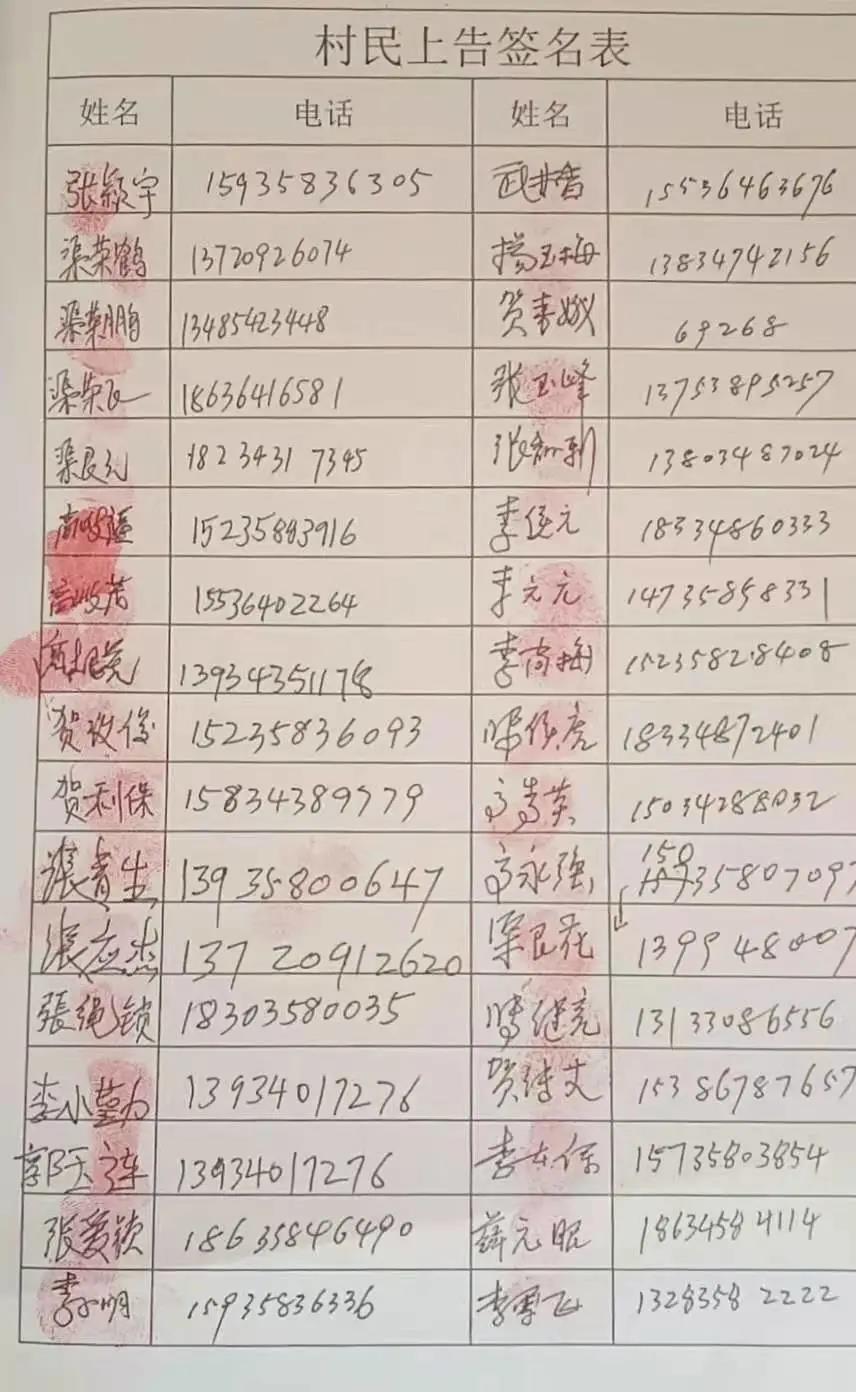 村民上告签名表
姓名 电话 姓名 电话
张颖宇 15935836305 武 15536463676
渠荣鹤 13720926074 杨玉梅 13834742156
渠朝鹏 13485423448 贺春娥 69268
渠荣 18636416581 张玉峰 13753895257
渠良元 18234317345 张 13803487024
高 15235893916 李俊元 18334860333
高峻茂 15536402264 李元元 14735858331
13934351178 李高梅 15235828408
贺改俊 15235836093 18334872401
贺利保 15834389779 高 英 15034288032
张青生 13935800647 高永强 150 35807097
张应杰 13720912620 梁良花 139948007
張绳锁 18303580035 继亮 13133086556
李小 13934017276 贺 15386787657
郭玉连 13934017276 李 保 15735803854
张爱锁 18635846490 薛元 18634584114
李小明 15935836336 李 飞 13283582222